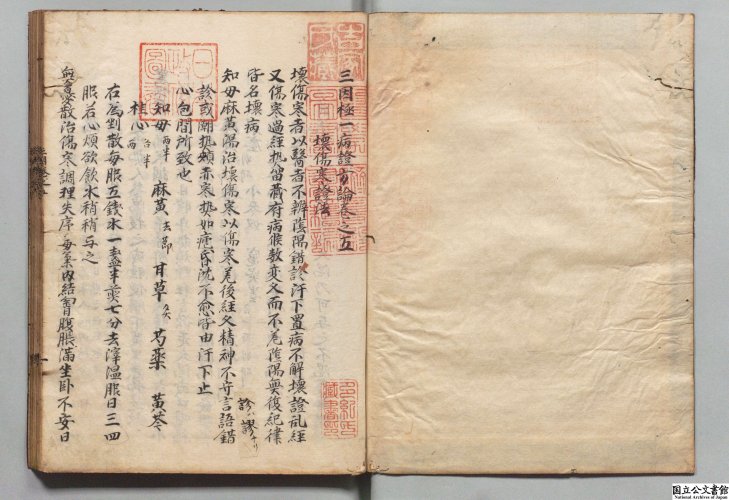 三因極一病證方論卷之五
壞傷寒證治
壞傷寒者以醫者不辨蔭陽錯診汗下置病不解壞證乱經
又傷寒過經熱留蔵府病候数変久而不差蔭陽無復紀律
皆名壞病
知母麻黃湯治壞傷寒以傷寒差後經久精神不守言語錯
診或潮热頰赤寒热如瘧昏沈不愈皆由汗下止
心包間所致也
知母 兩半 麻黃 去節 甘草 炙 芍藥 黃芩
桂心 各半兩
右為剉散每服五錢水一盞半煎七分去滓温服日三四
服若心煩欲飲水稍稍与之
散治傷寒調理失序毒氣内結胷腹脹滿坐卧不安日
診ハ謬ナリ
多紀氏
藏書印
国立公文書館
National Archives of Japan